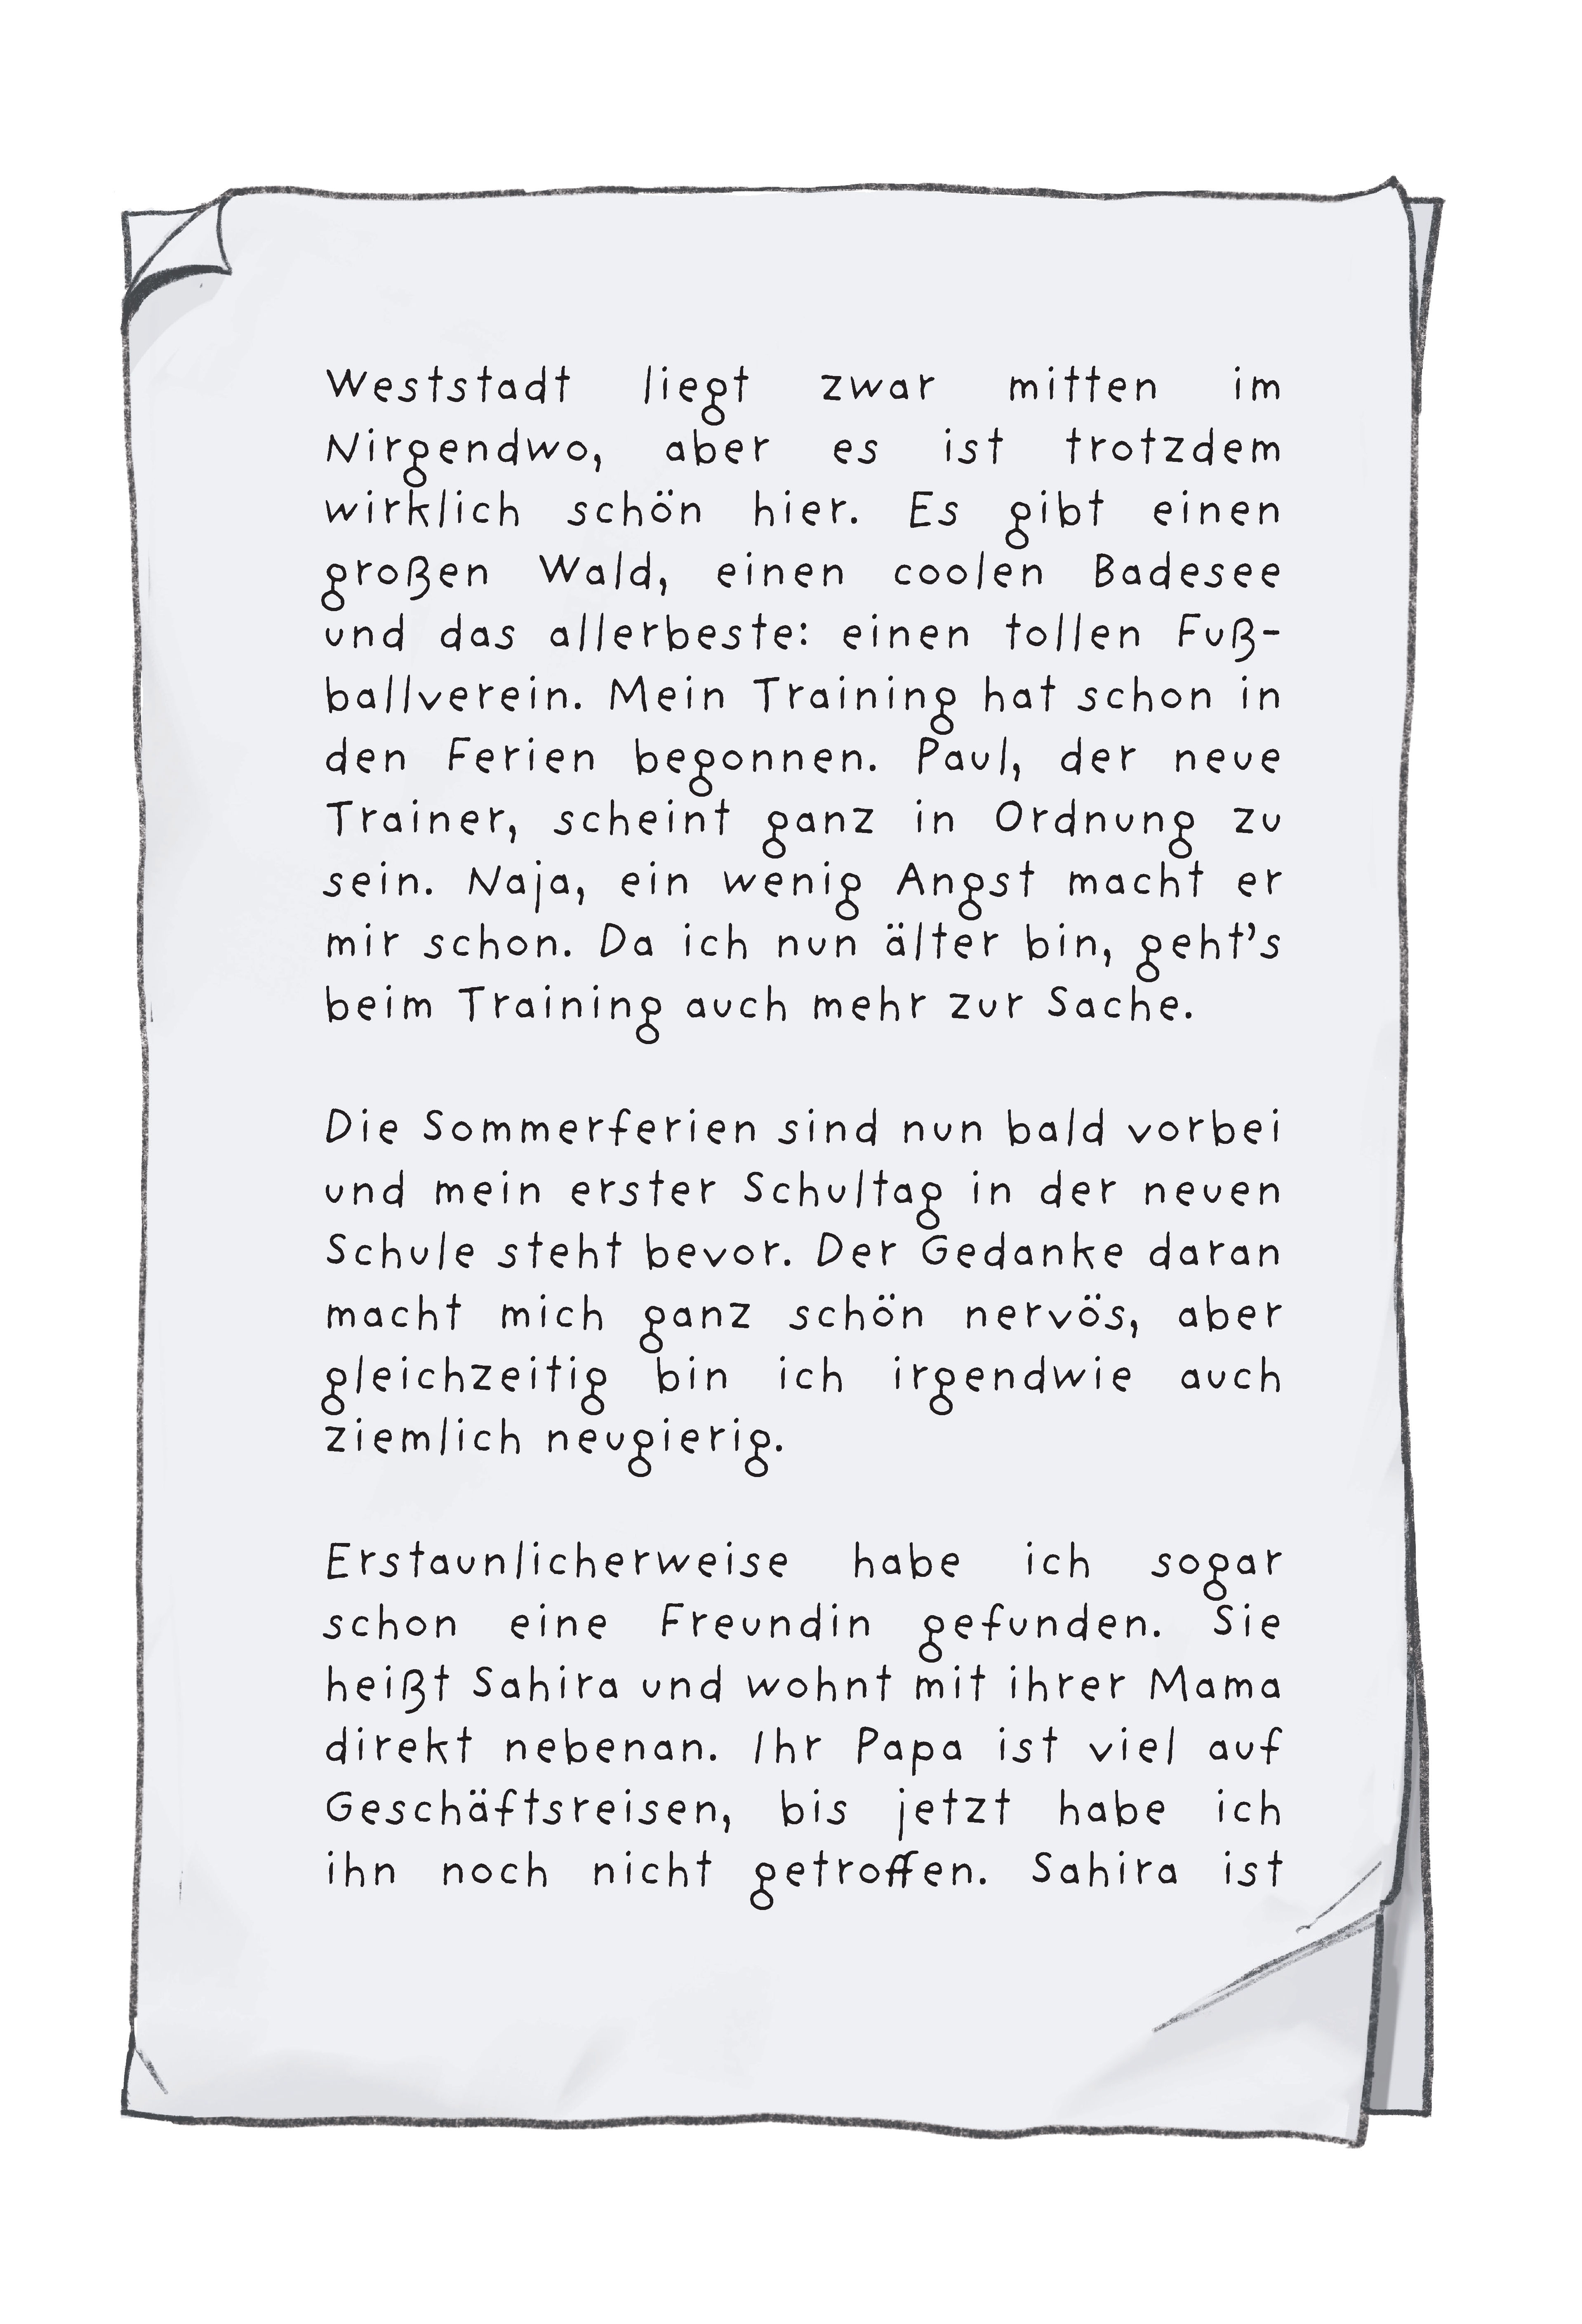 Weststadt liegt zwar mitten im
Nirgendwo, aber es ist trotzdem
wirklich schön hier. Es gibt einen
großen Wald, einen coolen Badesee
und das allerbeste: einen tollen Fuß-
ballverein. Mein Training hat schon in
den Ferien begonnen. Paul, der neue
Trainer, scheint ganz in Ordnung zu
sein. Naja, ein wenig Angst macht er
mir schon. Da ich nun älter bin, geht’s
beim Training auch mehr zur Sache.

Die Sommerferien sind nun bald vorbei
und mein erster Schultag in der neuen
Schule steht bevor. Der Gedanke daran
macht mich ganz schön nervös, aber
gleichzeitig bin ich irgendwie auch
ziemlich neugierig.

Erstaunlicherweise habe ich sogar
schon eine Freundin gefunden. Sie
heißt Sahira und wohnt mit ihrer Mama
direkt nebenan. Ihr Papa ist viel auf
Geschäftsreisen, bis jetzt habe ich
ihn noch nicht getroffen. Sahira ist